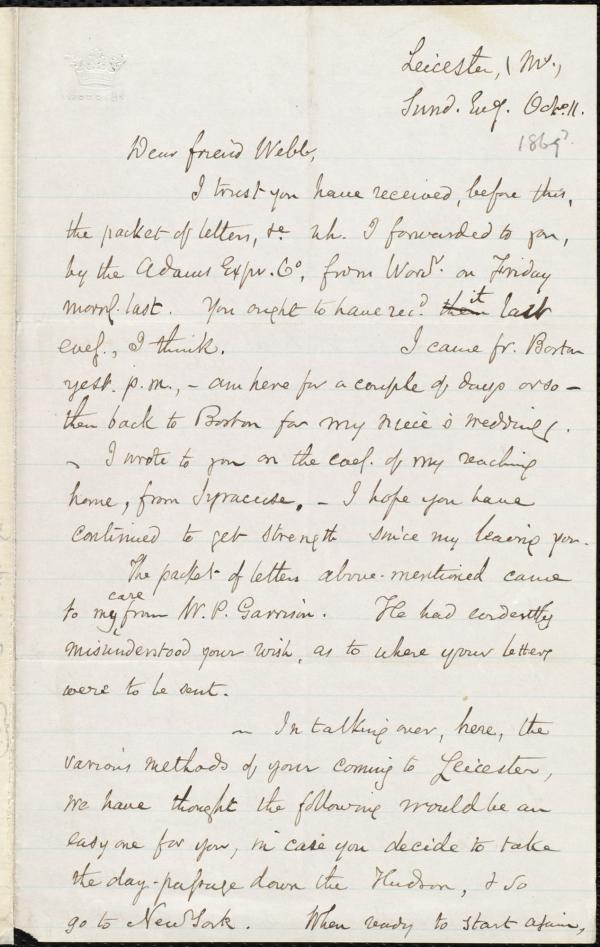 Leicester, (Ms.,
Sund. Evg. Oct. 11.
1869?
Dear friend Webb,
I trust you have received, before this,
the packet of letters, &c wh. I forwarded to you,
by the Adams Expr. Co, from Worr. on Friday
morng. last. You ought to have recd. them it last
eveg., I think. I came fr. Boston
yest. p.m., – am here for a couple of days or so –
then back to Boston for my niece's wedding.
– I wrote to you on the eveg. of my reaching
home, from Syracuse. – I hope you have
continued to get strength since my leaving you.
The packet of letters above-mentioned came
to my care from W. P. Garrison. He had evidently
misunderstood your wish, as to where your letters
were to be sent.
– In talking over, here, the
various methods of your coming to Leicester,
we have thought the following would be an
easy one for you, in case you decide to take
the day-passage down the Hudson, & so
go to New York. When ready to start again,